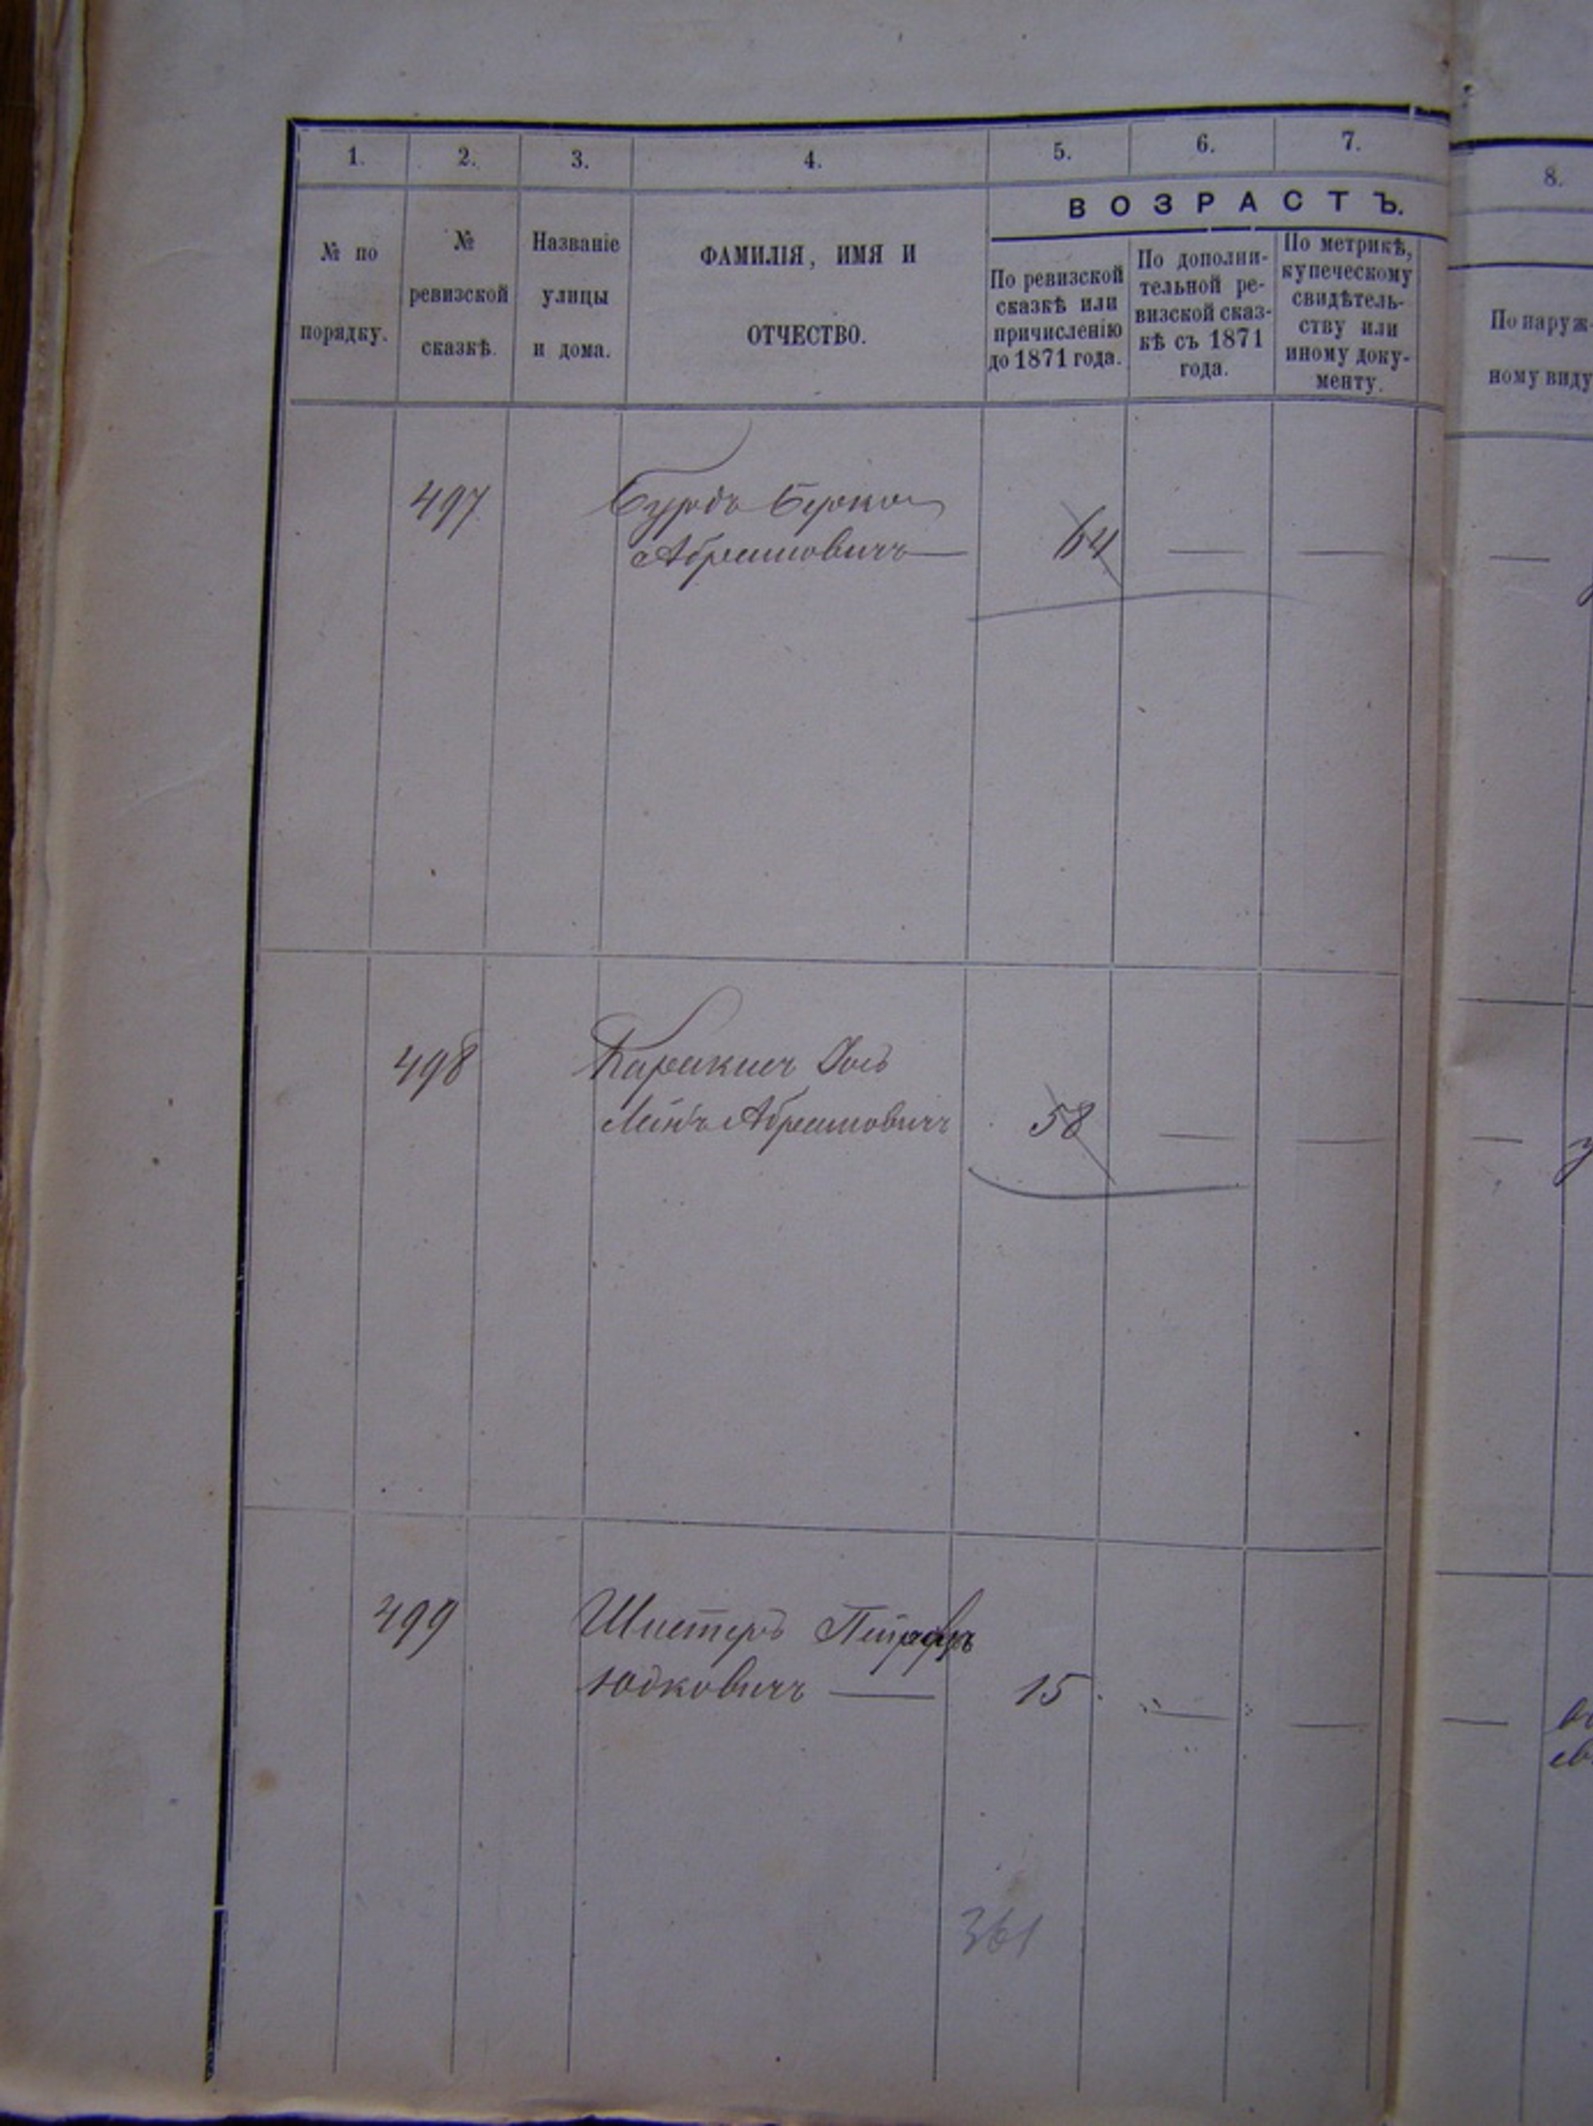 1. 2. 3. 4. 5. 6. 7. 8.
ВОЗРАСТЪ.
№ по
порядку.
№
ревизской
сказкѣ.
Названіе
улицы
и дома.
ФАМИЛІЯ, ИМЯ И
ОТЧЕСТВО.
По ревизской
сказкѣ или
причисленію
до 1871 года.
По дополни-
тельной ре-
визской сказ-
кѣ съ 1871
года.
По метрикѣ,
купеческому
свидѣтель-
ству или
иному доку-
менту.
По наруж-
ному виду
497 Бурдъ Берко
Абрамовичъ — 64 — — —
498
Абрамовичъ 58 — — —
499 Шистеръ
Юдковичъ — 15 — — —
361